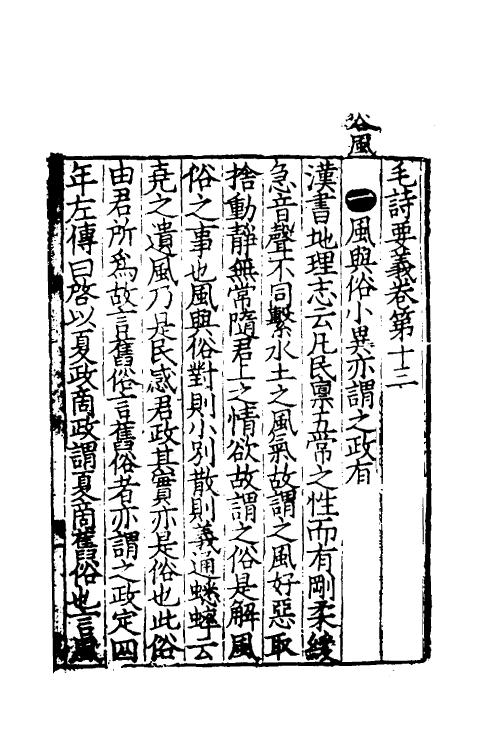 俗風
毛詩要義卷第十三
一 風與俗小異亦謂之政有
漢書地理志云凡民稟五常之性而有剛柔緩
急音聲不同繫水土之風氣故謂之風好惡取
捨動靜無常隨君上之情欲故謂之俗是解風
俗之事也風與俗對則小別散則義通蟋蟀云
堯之遺風乃是民感君政其實亦是俗也此俗
由君所為故言舊俗言舊俗者亦謂之政定四
年左傳曰啓以夏政商政謂夏商舊俗也言風